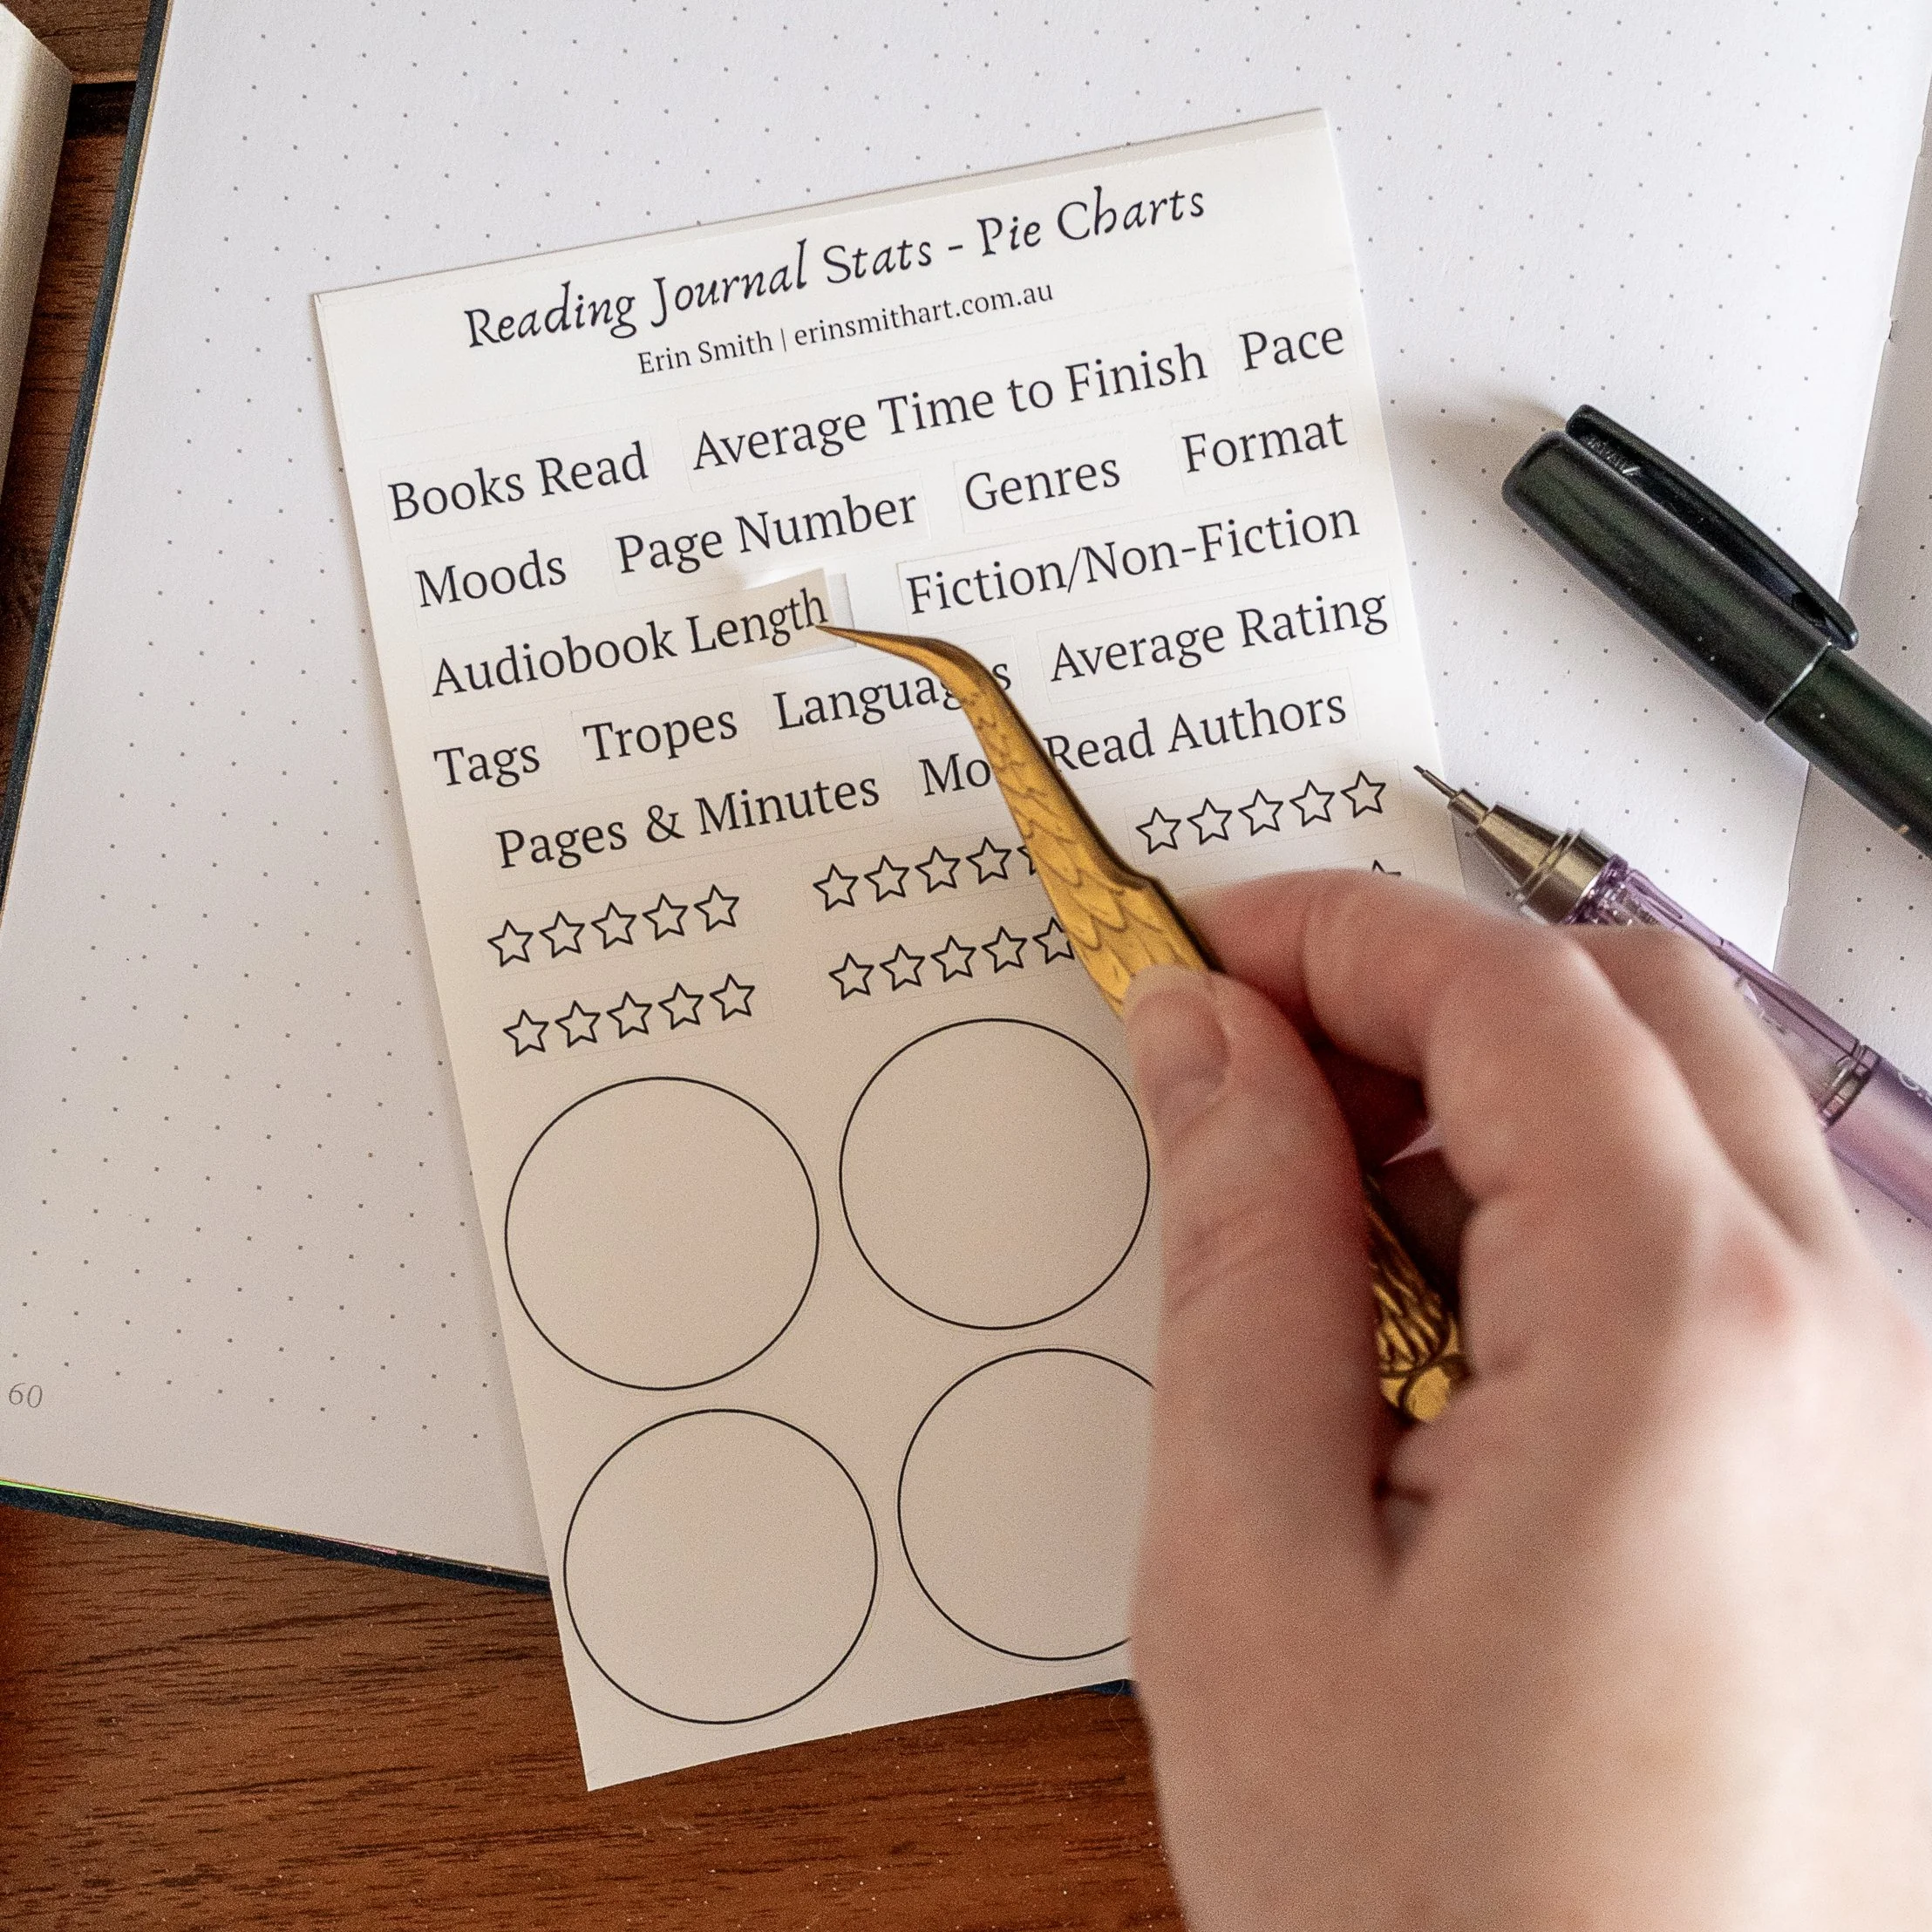 Reading Journal Stats - Pie Charts
Erin Smith | erinsmithart.com.au
Books Read Average Time to Finish Pace
Moods Page Number Genres Format
Audiobook Length Fiction/Non-Fiction
Tags Tropes Languages Average Rating
Pages & Minutes Mo Read Authors
60